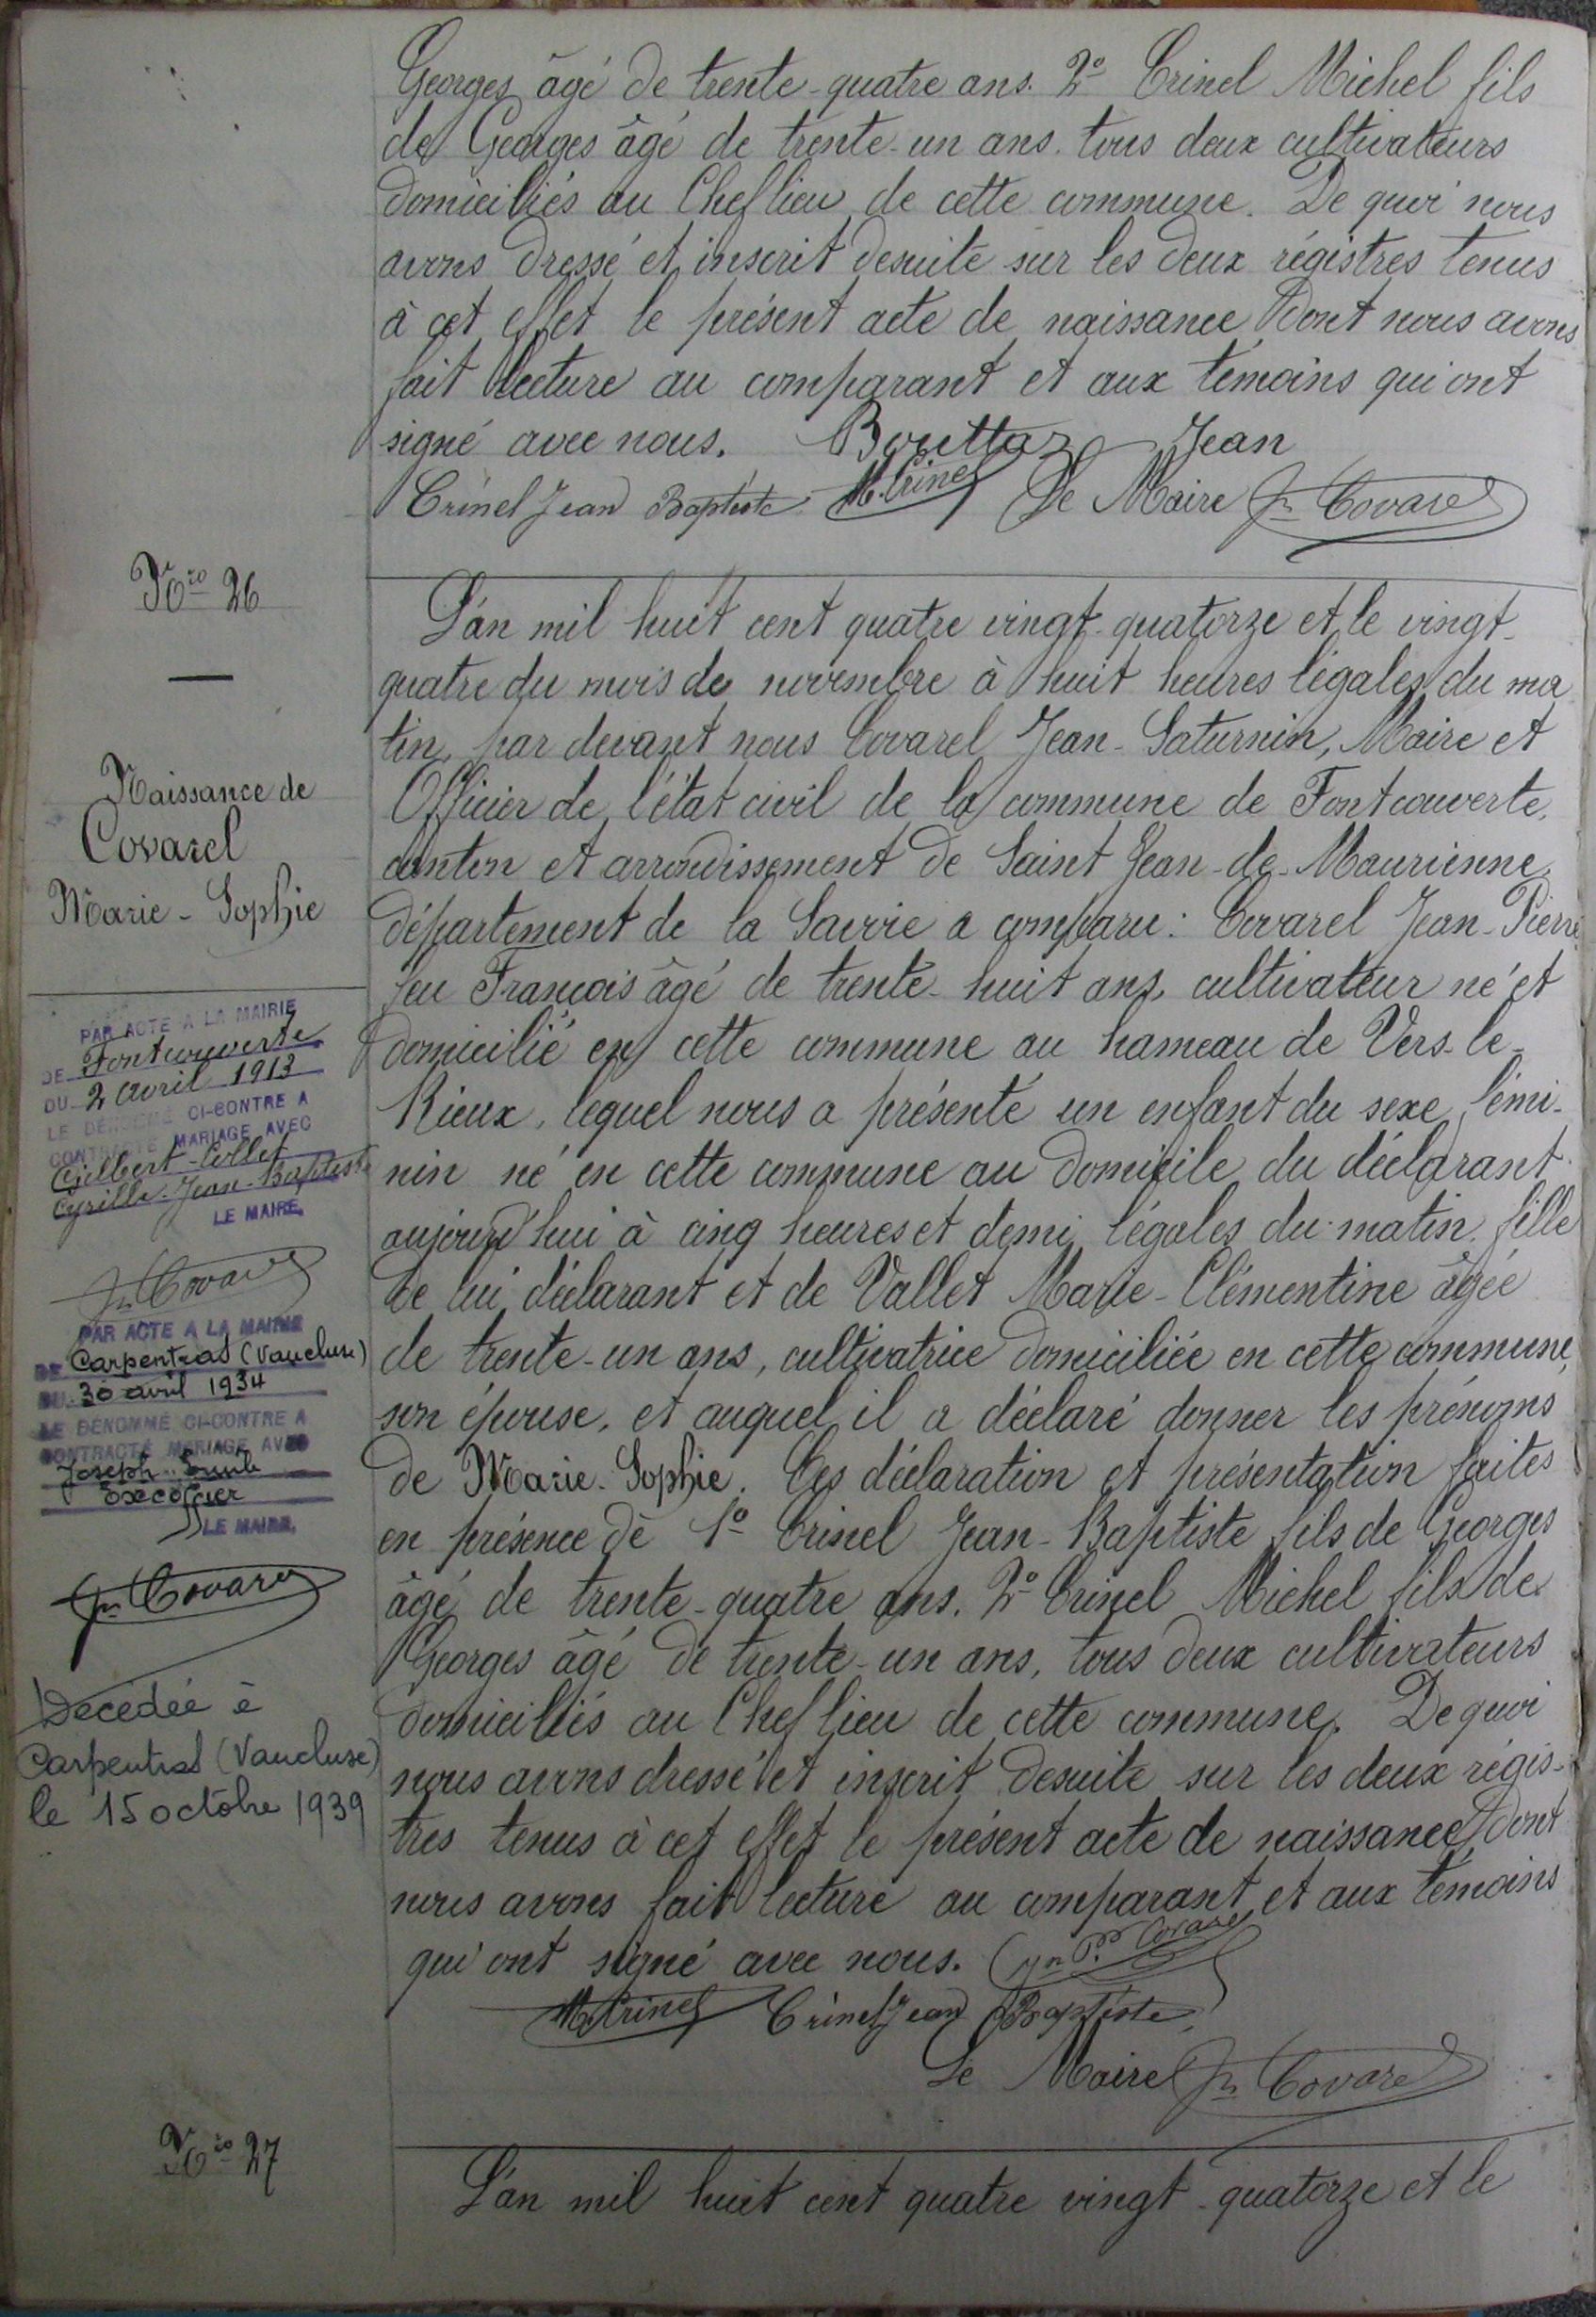 Georges âgé de trente-quatre ans. 2º Crinel Michel fils
de Georges âgé de trente-un ans. tous deux cultivateurs
domiciliés au Cheflieu de cette commune. De quoi nous
avons dressé et inscrit desuite sur les deux régistres tenus
à cet effet le présent acte de naissance dont nous avons
fait lecture au comparant et aux témoins qui ont
signé avec nous. Bouttaz Jean
Crinel Jean Baptiste M. Crinel Le Maire Jn Covarel
Nºº 26
L'an mil huit cent quatre vingt-quatorze et le vingt-
quatre du mois de novembre à huit heures légales du ma
tin, par devant nous Covarel Jean-Saturnin, Maire et
Officier de l'état civil de la commune de Fontcouverte,
canton et arrondissement de Saint Jean-de-Maurienne,
département de la Savoie a comparu: Covarel Jean-Pierre
feu François âgé de trente-huit ans, cultivateur né et
domicilié en cette commune au hameau de Vers-le-
Rieux, lequel nous a présenté un enfant du sexe fémi-
nin né en cette commune au domicile du déclarant
aujourd'hui à cinq heures et demi légales du matin, fille
de lui déclarant et de Vallet Marie-Clémentine âgée
de trente-un ans, cultivatrice domiciliée en cette commune,
son épouse, et auquel il a déclaré donner les prénoms
de Marie-Sophie. Ces déclaration et présentation faites
en présence de 1º Crinel Jean-Baptiste fils de Georges
âgé de trente-quatre ans. 2º Crinel Michel fils de
Georges âgé de trente-un ans, tous deux cultivateurs
domiciliés au Cheflieu de cette commune. De quoi
nous avons dressé et inscrit desuite sur les deux régis-
tres tenus à cet effet le présent acte de naissance dont
nous avons fait lecture au comparant et aux témoins
qui ont signé avec nous. Jn Pre Covarel
M. Crinel Crinel Jean Baptiste
Le Maire Jn Covarel
Naissance de
Covarel
Marie-Sophie
PAR ACTE A LA MAIRIE
DE Fontcouverte
DU 2 avril 1913
LE DÉNOMMÉ CI-CONTRE A
CONTRACTÉ MARIAGE AVEC
Gilbert-Collet
Cyrille-Jean-Baptiste
LE MAIRE,
Jn Covarel
PAR ACTE A LA MAIRIE
DE Carpentras (Vaucluse)
DU 30 avril 1934
LE DÉNOMMÉ CI-CONTRE A
CONTRACTÉ MARIAGE AVEC
Joseph Emile
Excoffier
LE MAIRE,
Jn Covarel
Décédée à
Carpentras (Vaucluse)
le 15 octobre 1939
Nºº 27
L'an mil huit cent quatre vingt-quatorze et le